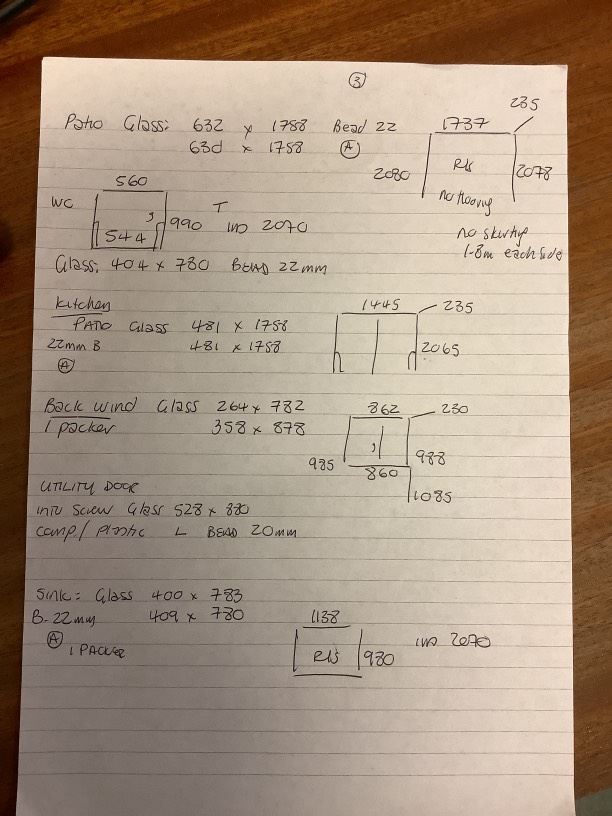 3
235
Patio Glass: 632 x 1758 Bead 22 1737
630 x 1758 A
2080 R/S 2078
no flooring
560
WC 990 T IWD 2070
544
no skirting
1-8m each side
Glass: 404 x 780 BEAD 22mm
Kitchen 1445 235
PATIO Glass 481 x 1758
22mm B 481 x 1758 2065
A
Back wind Glass 264 x 782 862 230
1 packer 358 x 878
985 860 988
1085
UTILITY DOOR
into screw Glass 528 x 880
comp / Plastic L BEAD 20mm
Sink: Glass 400 x 783
B-22mm 409 x 780 1138
A 1 PACKER R/S 980 IWD 2070